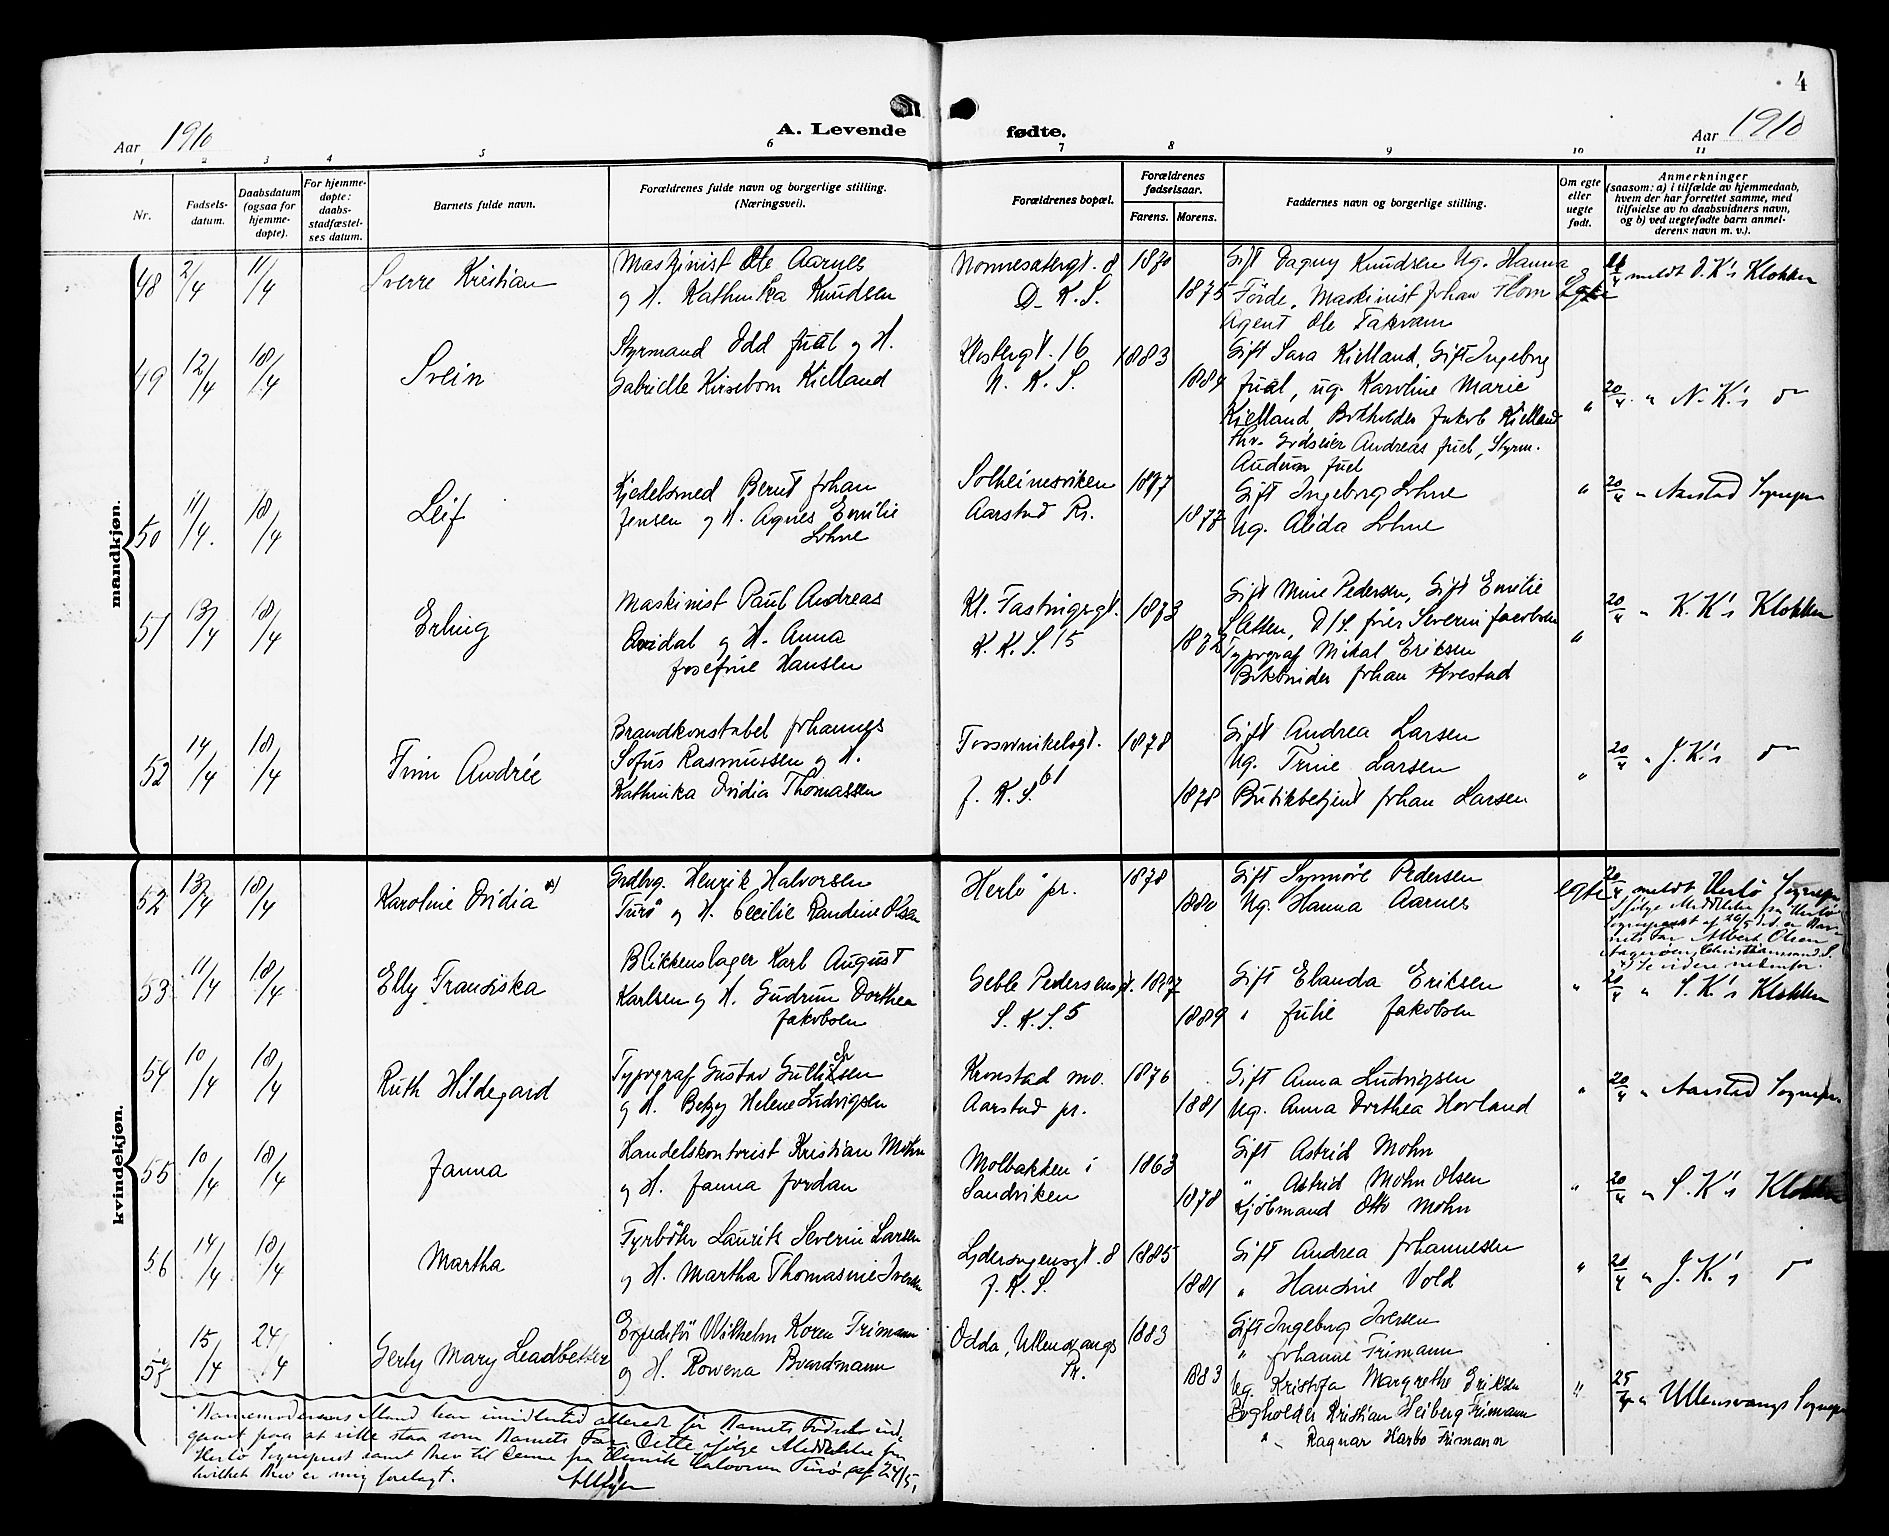 4
Aar 1910
A. Levende
fødte.
Aar 1910
1 2 3 4 5 6 7 8 9 10 11
Nr.
Fødsels-
datum.
Daabsdatum
(ogsaa for
hjemme-
døpte).
For hjemme-
døpte:
daabs-
stadfæstel-
ses datum.
Barnets fulde navn.
Forældrenes fulde navn og borgerlige stilling.
(Næringsvei).
Forældrenes bopæl.
Forældrenes
fødselsaar.
Farens. Morens.
Faddernes navn og borgerlige stilling.
Om egte
eller
uegte
født.
Anmerkninger
(saasom: a) i tilfælde av hjemmedaab,
hvem der har forrettet samme, med
tilføielse av to daabsvidners navn,
og b) ved uegtefødte barn anmel-
derens navn m. v.).
mandkjøn.
48 2/4 11/4 Sverre Kristian
Maskinist Ole Aarnes
og H. Kathinka Knudsen
Nonnesætergt. 8
D. K. S.
1870
1875
Gift Dagny Knudsen Ug. Hanna
Førde, Maskinist Johan Hom
Agent Ole Takvam
Egte
meldt D. K's Klokker
49 12/4 18/4 Svein
Styrmand Odd Juul og H.
Gabrielle Kirsebom Kielland
Klostergt. 16
N. K. S.
1883
1884
Gift Sara Kielland, Gift Ingeborg
Juul, ug. Karoline Marie
Kielland, Jakob Kielland
Andreas Juel, Styrm.
Audun Juel
" 20/4 " N. K's do
50 11/4. 18/4 Leif
Kjedelsmed Bernt Johan
Jensen og H. Agnes Emilie
Lohne
Solheimsviken
Aarstad Pr.
1877
1877
Gift Ingeborg Lohne
Ug. Alida Lohne
" 20/4 " Aarstad Sognepr
51 13/4 18/4 Erling
Maskinist Paul Andreas
og H. Anna
Josefine Hansen
K. K. S. 15
1873
1872
Gift Mine Pedersen, Gift Emilie
Sletten, Severin Jacobsen
Typograf Mikal Eriksen
Johan
" 20/4 " K. K's Klokker
52 14/4 18/4 Finn Andrée
Brandkonstabel Johannes
Sofus Rasmussen og H.
Kathinka Ovidia Thomassen
J. K. S. 61
1878
1878
Gift Andrea Larsen
Ug. Trine Larsen
Butikbetjent Johan Larsen
" 20/4 " J. K's do
kvindekjøn.
52 13/4 18/4 Karoline Ovidia *)
Grdbrg. Henrik Halvorsen
Turø og H. Cecilie Randine Olsen
Herlø pr.
1878
1880
Gift Synnøve Pedersen
Ug. Hanna Aarnes
egte
20/4 meldt Herlø Sognepr
Ifølge Meddelelse fra Herlø
Sogneprest af 26/5 d.A. er Bar-
nets Far Albert Olsen
Christianssand S.
*) Se videre nedenfor.
53 11/4 18/4 Elly Fransiska
Blikkenslager Karl August
Karlsen og H. Gudrun Dorthea
Jakobsen
Geble Pedersensgt.
S. K. S. 5
1887
1889
Gift Elanda Eriksen
" Julie Jakobsen
" 20/4 " S. K's Klokker
54 10/4 18/4 Ruth Hildegard
Typograf Gustav Gulliksen
og H. Betzy Helene Ludvigsen
Kronstad mo.
Aarstad pr.
1876
1881
Gift Anna Ludvigsen
Ug. Anna Dorthea Hovland
" 20/4 " Aarstad Sognepr
55 10/4 18/4 Janna
Handelskontorist Kristian Mohn
og H. Janna Jordan
Molbakken i
Sandviken
1863
1878
Gift Astrid Mohn
" Astrid Mohn Olsen
Kjøbmand Otto Mohn
" 20/4 " S. K's Klokker
56 14/4 18/4 Martha
Fyrbøter Laurits Severin Larsen
og H. Martha Thomasine Iversen
8
J. K. S.
1885
1881
Gift Andrea Johannesen
" Hansine Vold
" 20/4 " J. K's do
57 15/4 24/4 Gerly Mary Leadbetter
Expeditør Wilhelm Koren Frimann
og H. Rowena Brandmann
Odda, Ullensvangs
Pr.
1883
1883
Gift Ingeborg Iversen
" Johanne Frimann
Ug. Kristofa Margrethe Eriksen
Bogholder Kristian Heiberg Frimann
" Ragnar Harbo Frimann
" 25/4 " Ullensvangs Sognepr
Barnemoderens Mand har imidlertid allerede før Barnets Fødsel ind-
gaaet paa at ville staa som Barnets Far. Dette ifølge Meddelelse fra
Herlø Sogneprest samt Brev til denne fra Henrik Halvorsen Turø af 24/5,
hvilket Brev er mig forelagt.